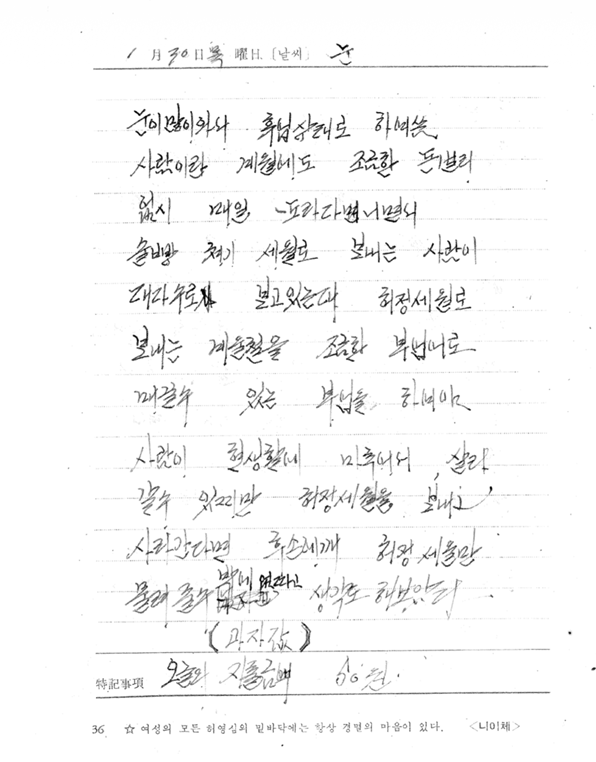 1 月 30 日 목 曜日. [날씨] 눈
눈이많이와서 휴업상태로 하여씀
사람이란 계월에도 조금한 돈벌리
없시 매일
술방 세월로 보내는 사람이
대다수로 보고있는대 허정세월로
보내는 계울철을 조금한 부업으로
때울수 있는 부업을 하여야
사람이 현생활에 마추어서 살라
갈수 있찌만 허정세월을 보내고
사라간다면 후손에게 허정세월만
물려줄수 밖에 없다고 생각도 해보았다
(과자값)
特記事項 오늘의 지출금액 50원.
36 ☆ 여성의 모든 허영심의 밑바닥에는 항상 경멸의 마음이 있다. <니이체>